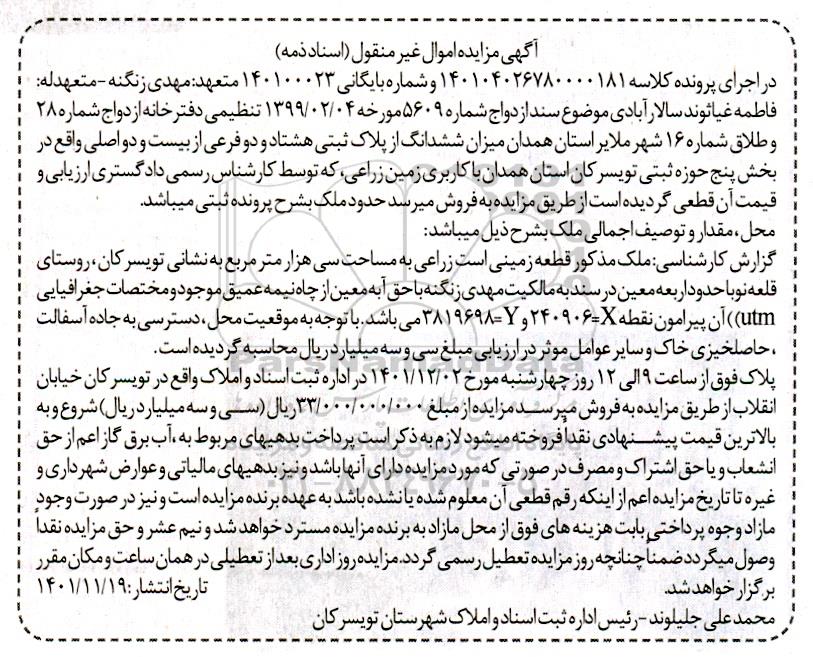 آگهی مزایده اموال غیر منقول (اسناد ذمه)
در اجرای پرونده کلاسه ۱۴۰۱۰۴۰۲۶۷۸۰۰۰۰۱۸۱ و شماره بایگانی ۱۴۰۱۰۰۰۲۳ متعهد: مهدی زنگنه - متعهدله:
فاطمه غیاثوند سالار آبادی موضوع سند ازدواج شماره ۵۶۰۹ مورخه ۱۳۹۹/۰۲/۰۴ تنظیمی دفترخانه ازدواج شماره ۲۸
و طلاق شماره ۱۶ شهر ملایر استان همدان میزان ششدانگ از پلاک ثبتی هشتاد و دو فرعی از بیست و دو اصلی واقع در
بخش پنج حوزه ثبتی تویسرکان استان همدان با کاربری زمین زراعی، که توسط کارشناس رسمی دادگستری ارزیابی و
قیمت آن قطعی گردیده است از طریق مزایده به فروش میرسد حدود ملک بشرح پرونده ثبتی میباشد.
محل، مقدار و توصیف اجمالی ملک بشرح ذیل میباشد:
گزارش کارشناسی: ملک مذکور قطعه زمینی است زراعی به مساحت سی هزار متر مربع به نشانی تویسرکان، روستای
قلعه نو با حدود اربعه معین در سند به مالکیت مهدی زنگنه با حق آبه معین از چاه نیمه عمیق موجود و مختصات جغرافیایی
utm)) آن پیرامون نقطه X=۲۴۰۹۰۶ و Y=۳۸۱۹۶۹۸ می باشد. با توجه به موقعیت محل، دسترسی به جاده آسفالت
، حاصلخیزی خاک و سایر عوامل موثر در ارزیابی مبلغ سی و سه میلیارد ریال محاسبه گردیده است.
پلاک فوق از ساعت ۹ الی ۱۲ روز چهارشنبه مورخ ۱۴۰۱/۱۲/۰۲ در اداره ثبت اسناد و املاک واقع در تویسرکان خیابان
انقلاب از طریق مزایده به فروش میرسد مزایده از مبلغ ۳۳/۰۰۰/۰۰۰/۰۰۰ ریال (سی و سه میلیارد ریال) شروع و به
بالاترین قیمت پیشنهادی نقداً فروخته میشود لازم به ذکر است پرداخت بدهیهای مربوط به، آب برق گاز اعم از حق
انشعاب و یا حق اشتراک و مصرف در صورتی که مورد مزایده دارای آنها باشد و نیز بدهیهای مالیاتی و عوارض شهرداری و
غیره تا تاریخ مزایده اعم از اینکه رقم قطعی آن معلوم شده یا نشده باشد به عهده برنده مزایده است و نیز در صورت وجود
مازاد وجوه پرداختی بابت هزینه های فوق از محل مازاد به برنده مزایده مسترد خواهد شد و نیم عشر و حق مزایده نقداً
وصول میگردد ضمناً چنانچه روز مزایده تعطیل رسمی گردد. مزایده روز اداری بعد از تعطیلی در همان ساعت و مکان مقرر
برگزار خواهد شد. تاریخ انتشار: ۱۴۰۱/۱۱/۱۹
محمد علی جلیلوند - رئیس اداره ثبت اسناد و املاک شهرستان تویسرکان
ParsNamadData
۰۲۱-۸۸۳۴۹۶۷۰-۵